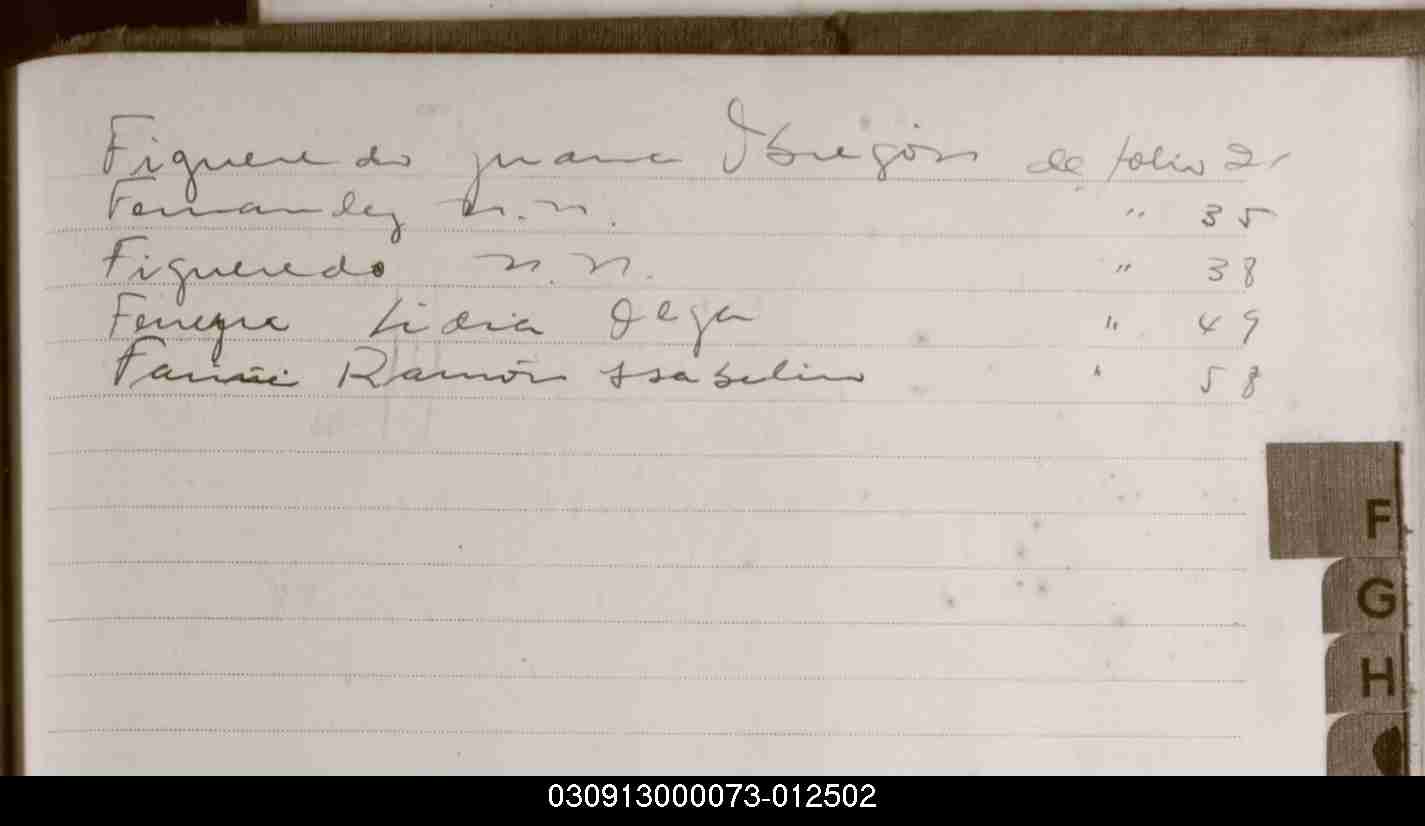 Figueredo Juana Obregón de folio 21
Fernandez N.N. " 35
Figueredo N.N. " 38
Ferreyra Lidia " 49
Ramón Isabelino " 58
F
G
H
030913000073-012502